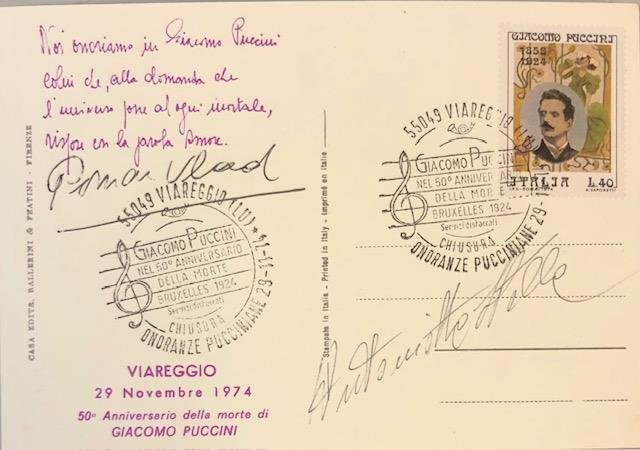 Noi onoriamo in Giacomo Puccini
colui che, alla domanda che
l'universo pone al ogni mortale,
rispose con la parola Amore.
Roman Vlad
55049 VIAREGGIO (LU)
GIACOMO PUCCINI
NEL 50° ANNIVERSARIO
DELLA MORTE
BRUXELLES 1924
Servizi distaccati
CHIUSURA
ONORANZE PUCCINIANE 29-11-
VIAREGGIO
29 Novembre 1974
50° Anniversario della morte di
GIACOMO PUCCINI
CASA EDITR. BALLERINI & FRATINI - FIRENZE
Stampata in Italia - Printed in Italy - Imprimé en Italie
GIACOMO PUCCINI
1858
1924
ITALIA L.40
55049 VIAREGGIO (LU)
GIACOMO PUCCINI
NEL 50° ANNIVERSARIO
DELLA MORTE
BRUXELLES 1924
Servizi distaccati
CHIUSURA
ONORANZE PUCCINIANE 29-11-
Antonietta Stella